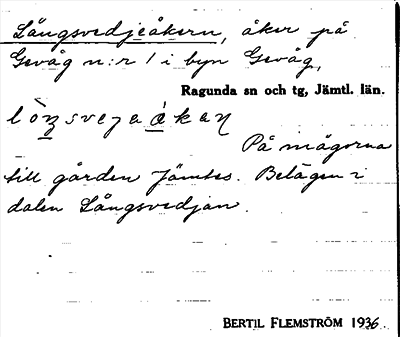 Långsvedjeåkern, åker på
Gevåg n:r 1 i byn Gevåg,
Ragunda sn och tg, Jämtl. län.
På inägorna
till gården Jämtes. Belägen i
dalen Långsvedjan.
BERTIL FLEMSTRÖM 1936.